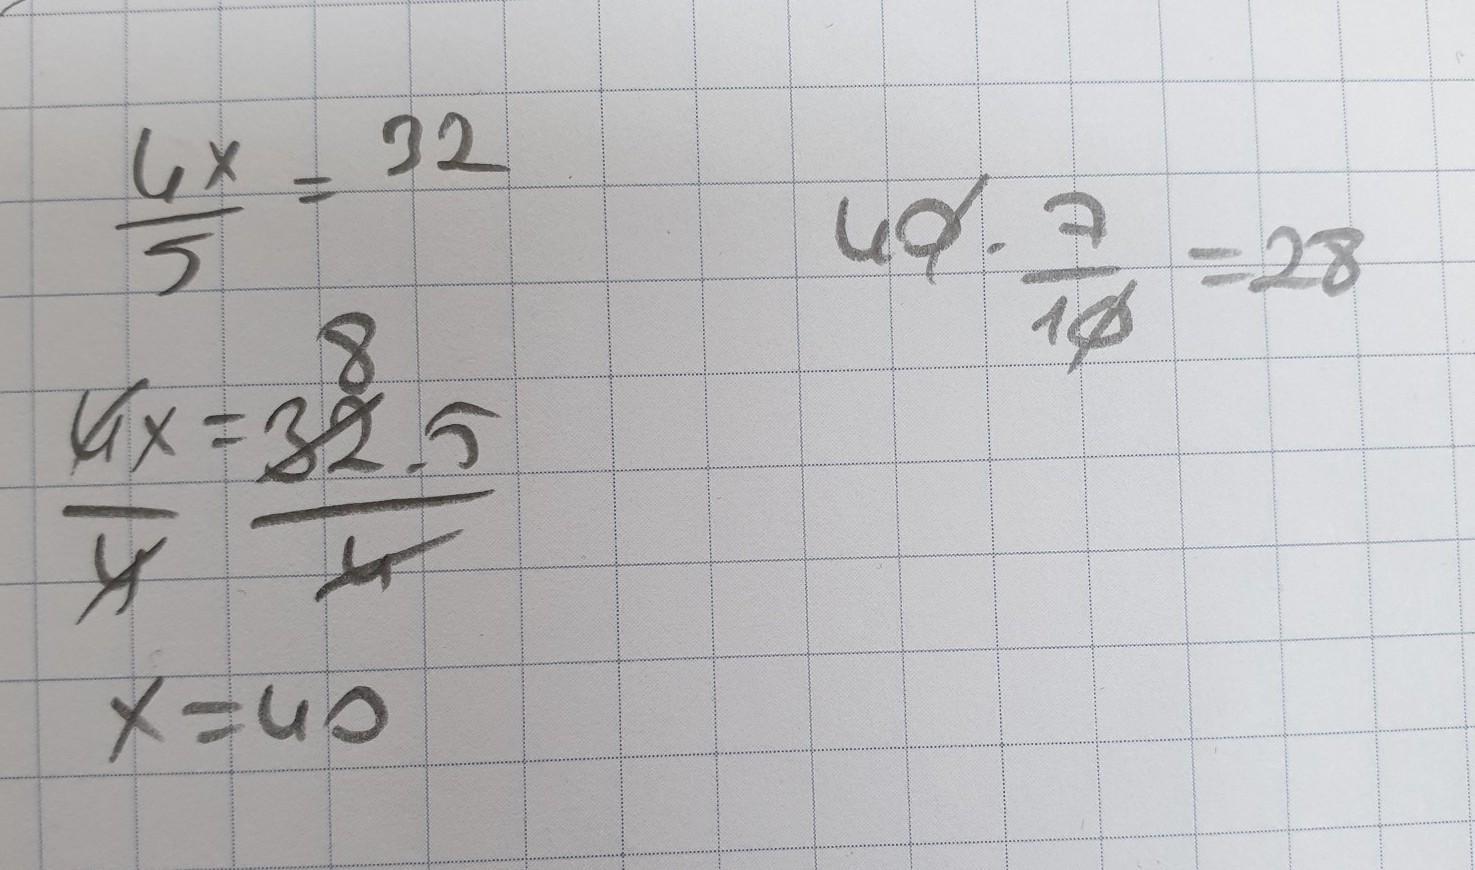 4x/5 = 32
8
4x/4 = 32.5/4
x=40
40 · 7/10 = 28